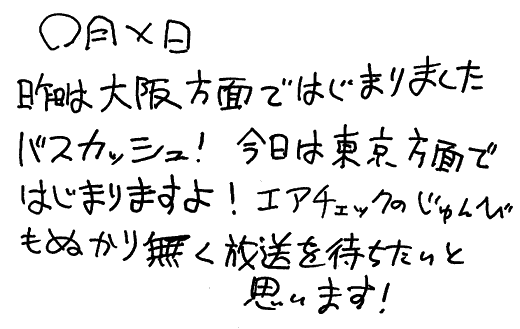 〇月×日
昨日は大阪方面ではじまりました
バスカッシュ! 今日は東京方面で
はじまりますよ! エアチェックのじゅんび
もぬかり無く放送を待ちたいと
思います!